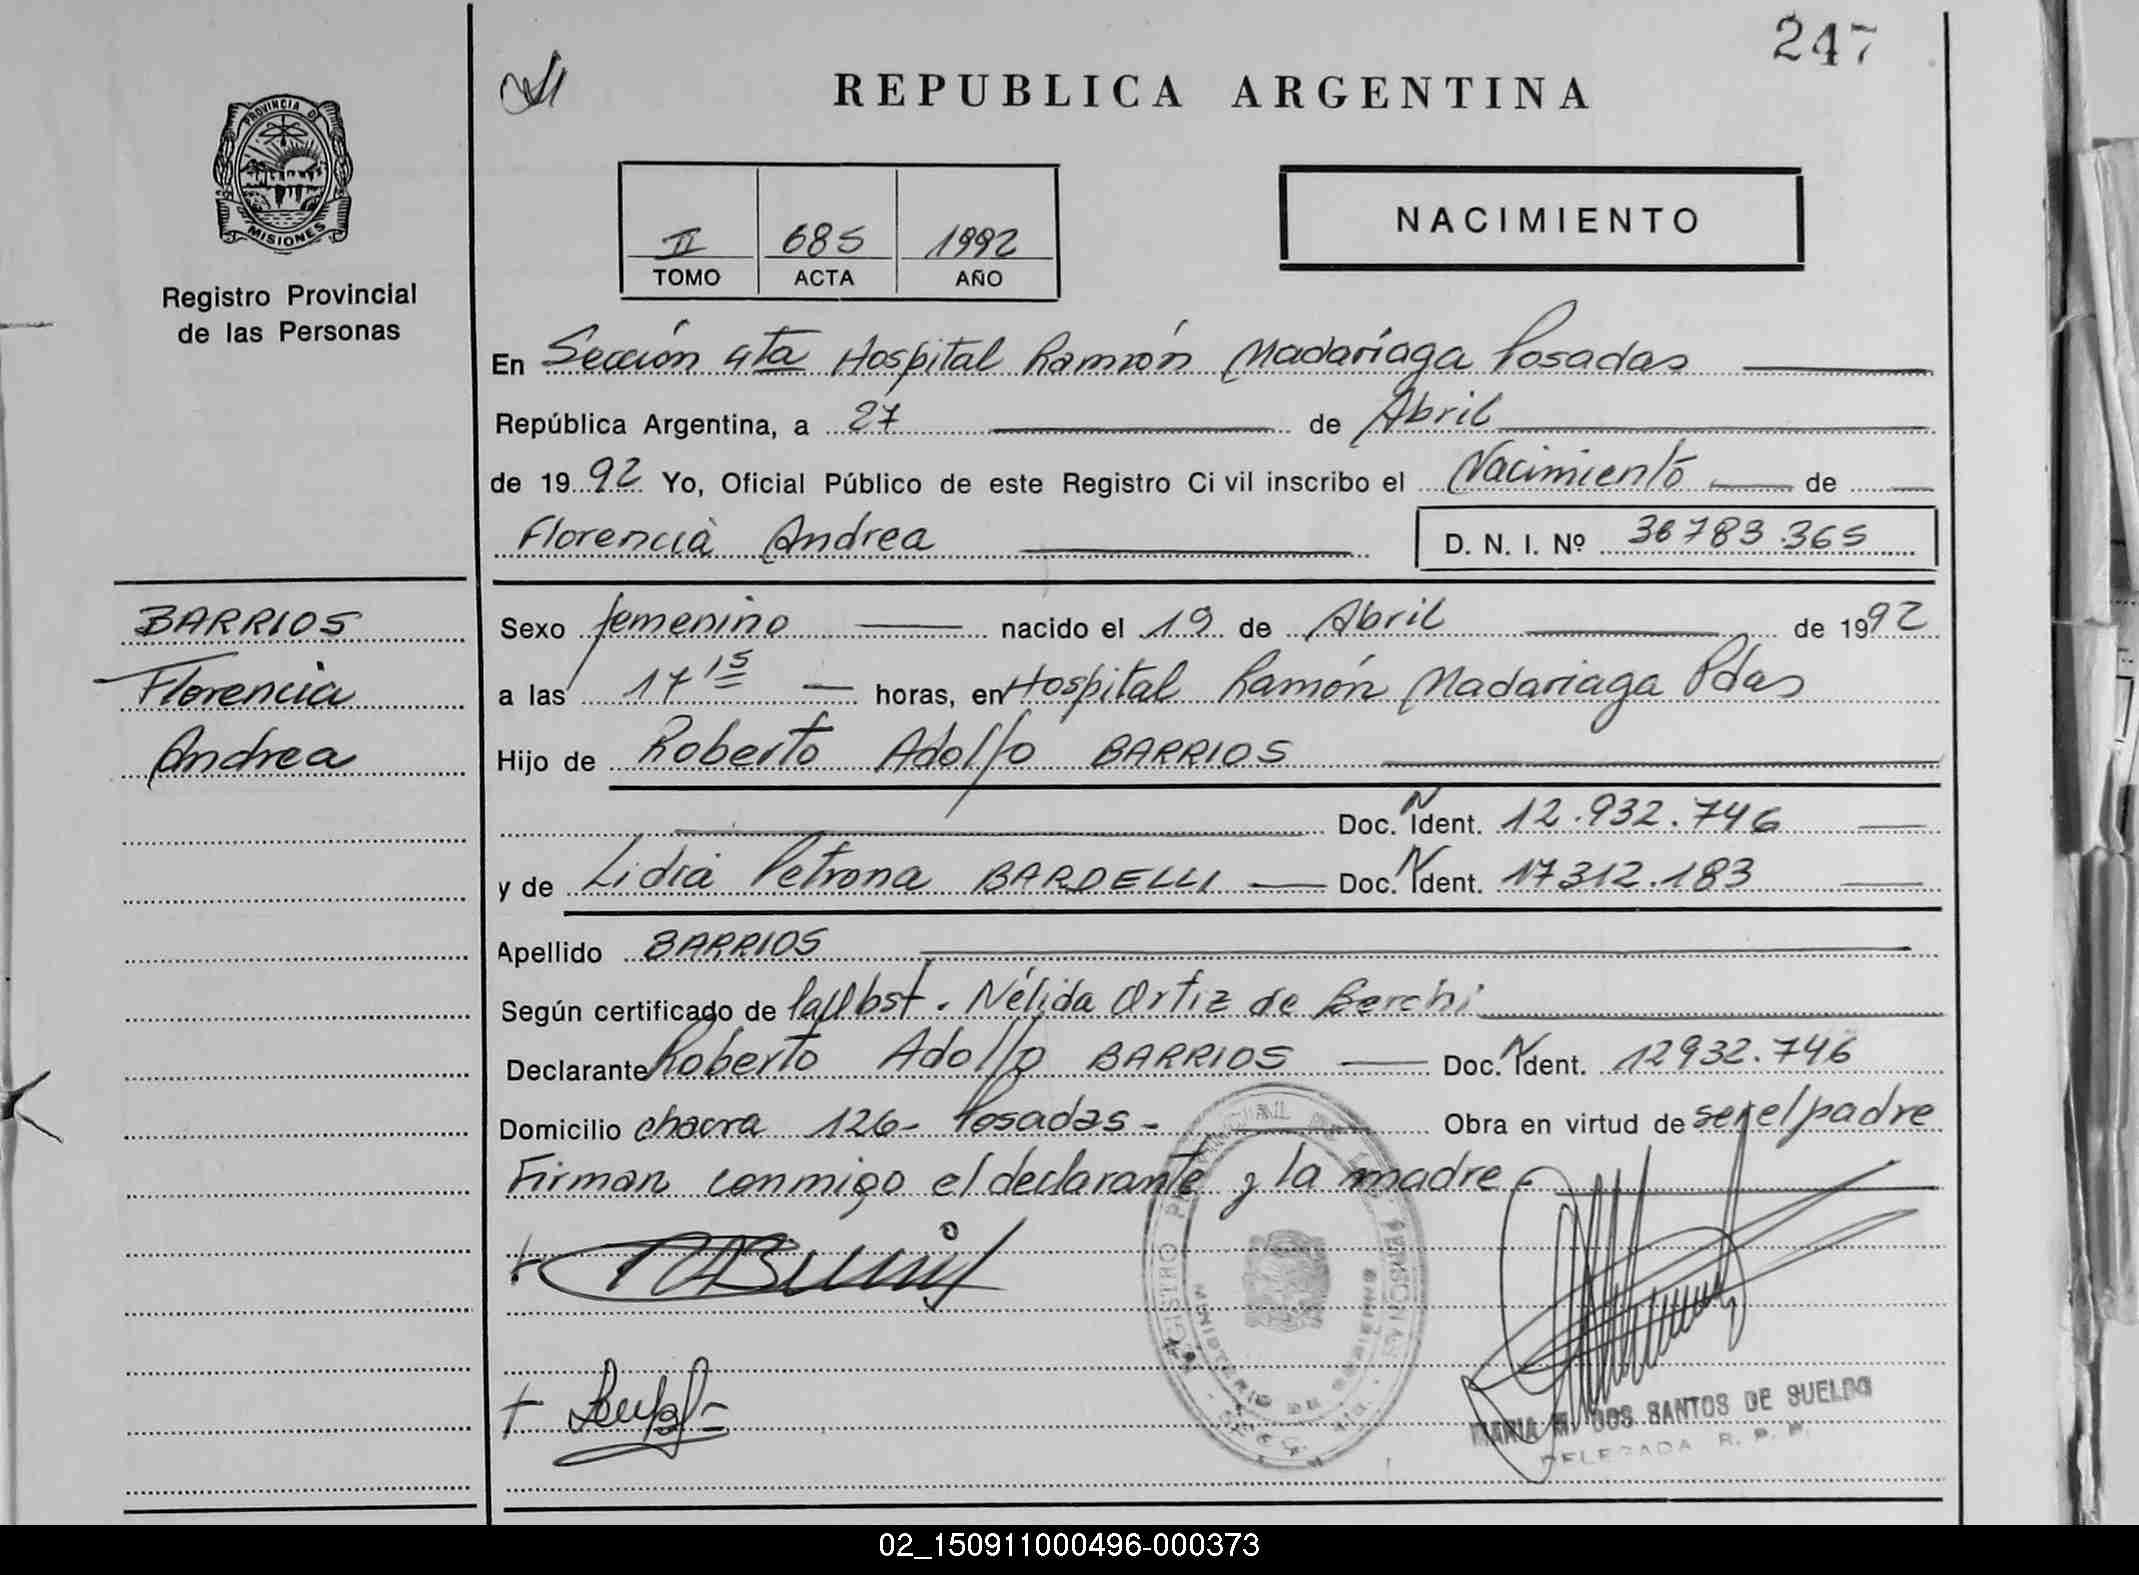 247
REPUBLICA ARGENTINA
PROVINCIA DE
MISIONES
Registro Provincial
de las Personas
II 685 1992
TOMO ACTA AÑO
NACIMIENTO
En Sección 4ta Hospital Ramón Madariaga Posadas
República Argentina, a 27 de Abril
de 1992 Yo, Oficial Público de este Registro Civil inscribo el Nacimiento de
Florencia Andrea D. N. I. Nº 36783.365
BARRIOS
Florencia
Andrea
Sexo femenino nacido el 19 de Abril de 1992
a las 17 15 horas, en Hospital Ramón Madariaga Pdas
Hijo de Roberto Adolfo BARRIOS
Doc. N Ident. 12.932.746
y de Lidia Petrona BARDELLI Doc. N Ident. 17312.183
Apellido BARRIOS
Según certificado de la Obst. Nélida Ortiz de Berchi
Declarante Roberto Adolfo BARRIOS Doc. N Ident. 12932.746
Domicilio chacra 126- Posadas- Obra en virtud de ser el padre
Firman conmigo el declarante y la madre
MINISTERIO DE GOBIERNO
MARIA M. DOS SANTOS DE SUELDO
DELEGADA R. P. P.
02_150911000496-000373